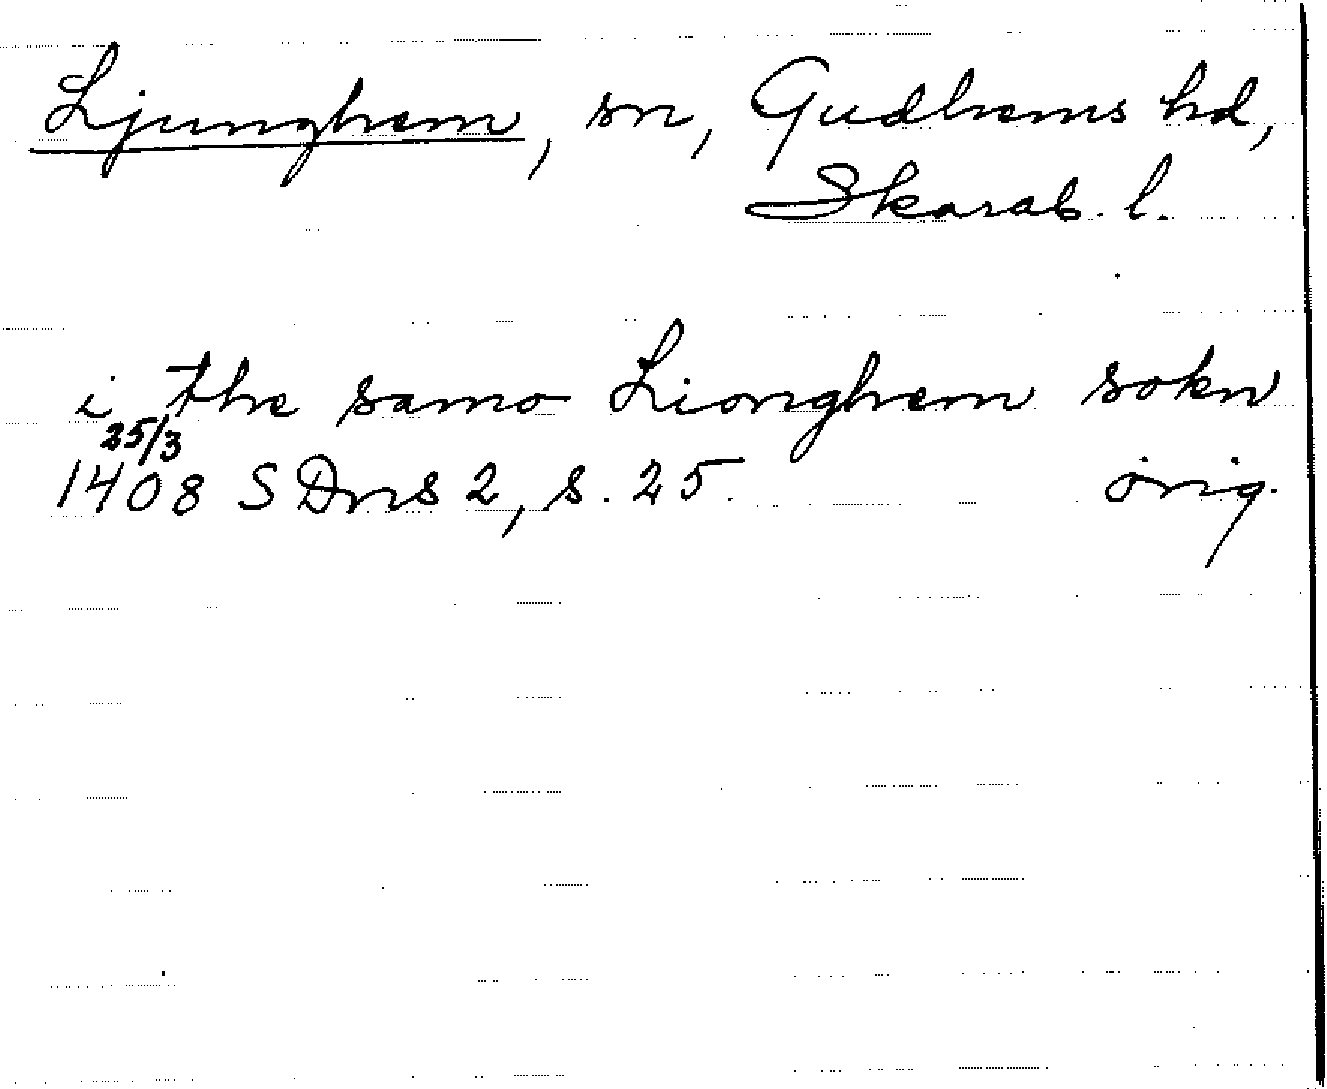 Ljunghem, sn, Gudhems hd,
Skarab. l.
i the samo Lionghem sokn
25/3
1408 SDns 2, s. 25. orig.